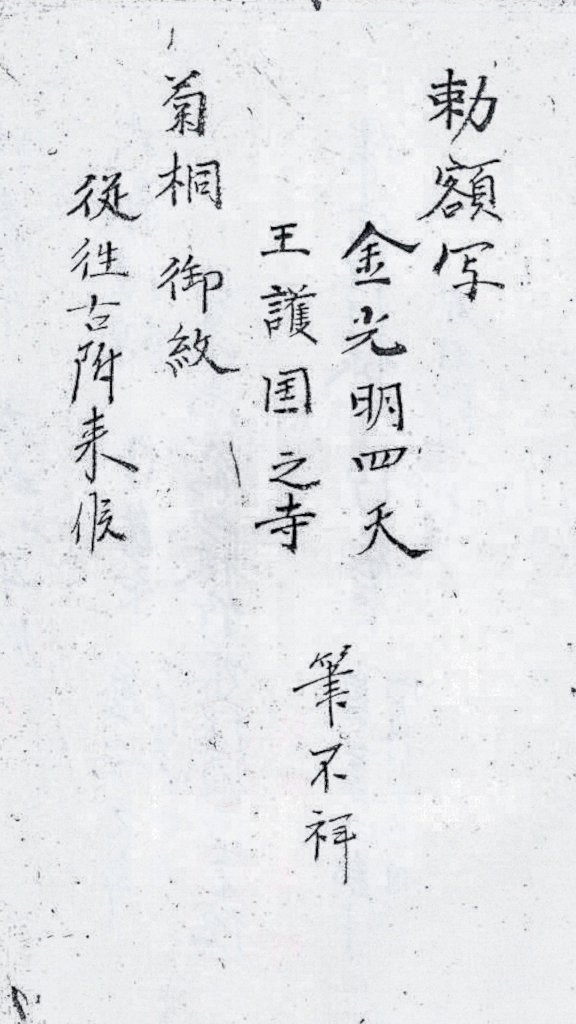 勅額写
金光明四天
王護国之寺
筆不祥
菊桐御紋
従往古附来候